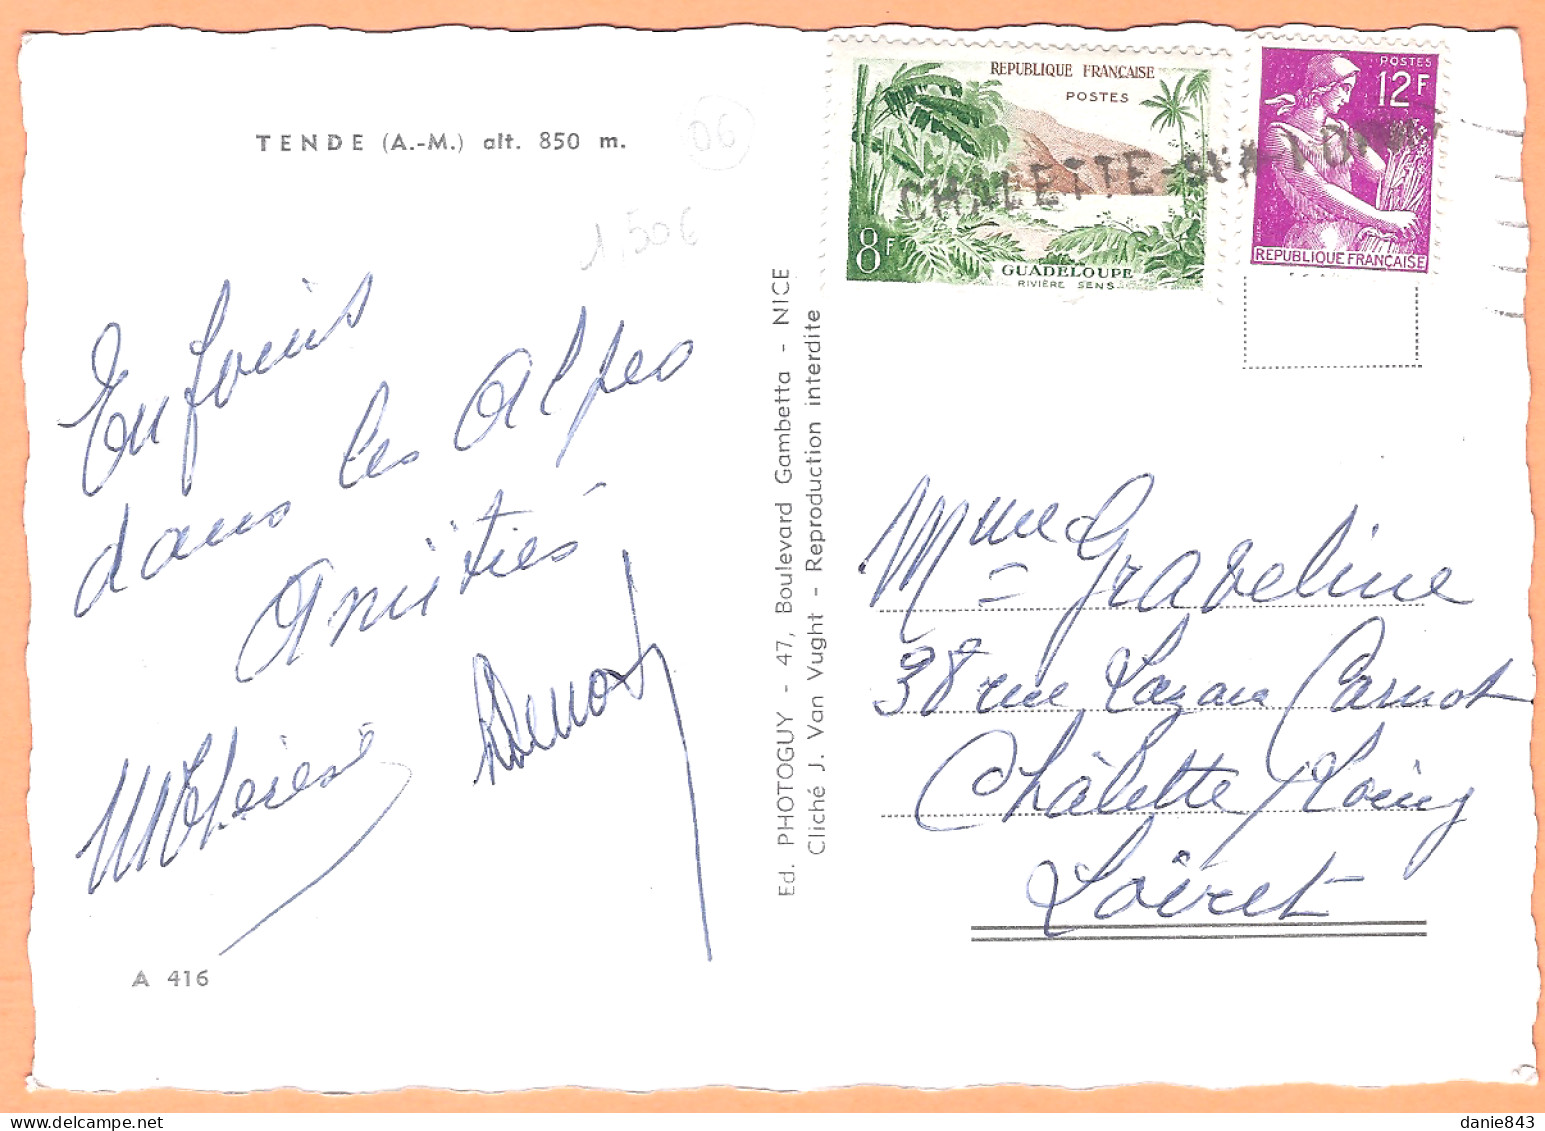 TENDE (A.-M.) alt. 850 m.
06
1,50€
Enfouis
dans les Alpes
Amitiés
M Thérèse
A 416
Ed. PHOTOGUY - 47, Boulevard Gambetta - NICE
Cliché J. Van Vught - Reproduction interdite
REPUBLIQUE FRANÇAISE
POSTES
8F
GUADELOUPE
RIVIÈRE SENS
POSTES
12F
REPUBLIQUE FRANÇAISE
CHALETTE-SUR-LOING
Mme Graveline
38 rue Lazare Carnot
Châlette s/Loing
Loiret
danie843